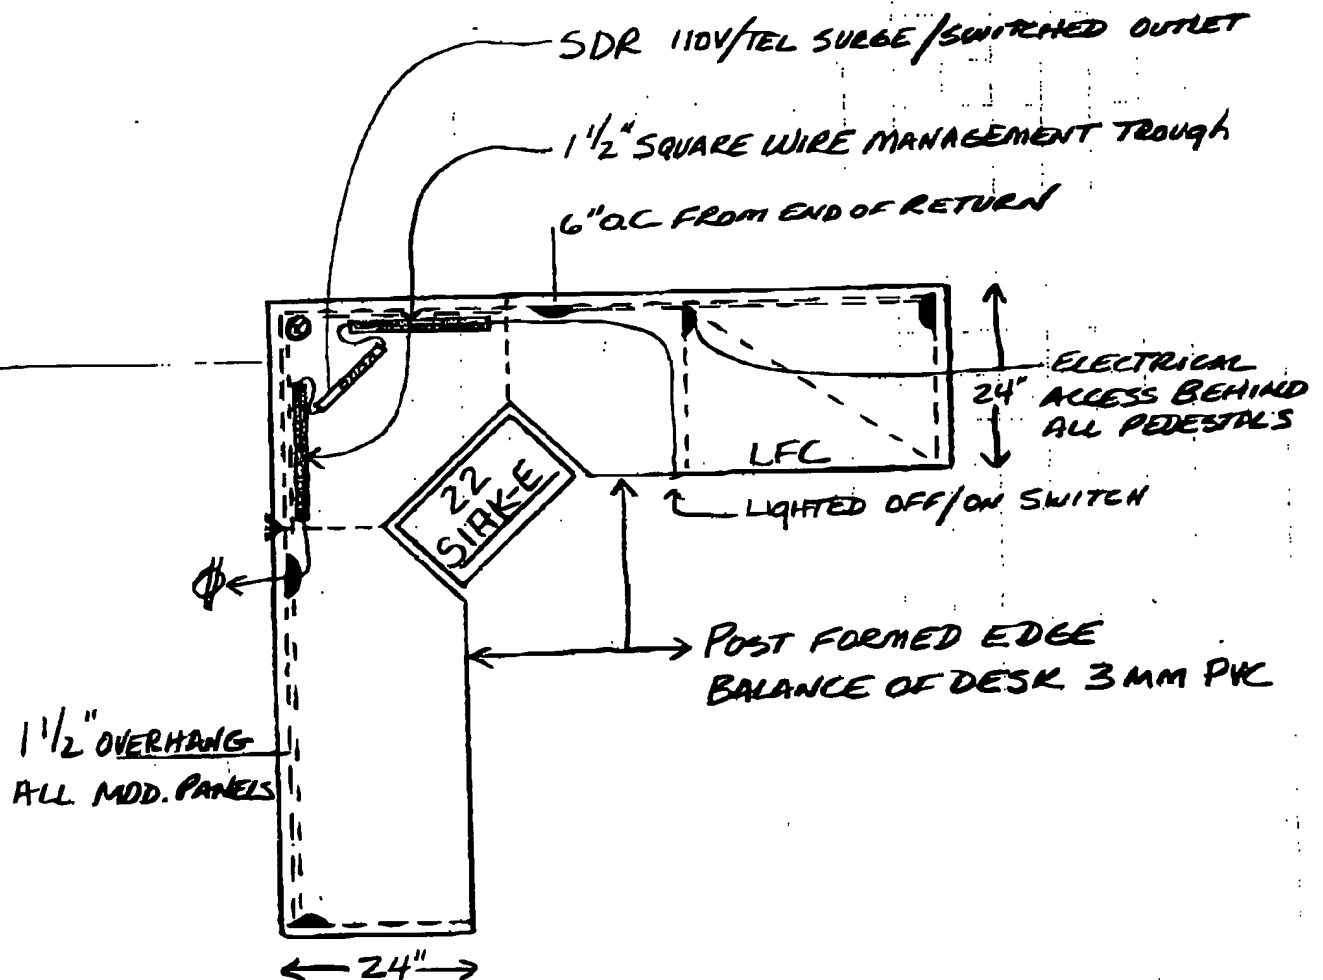 SDR 110V/TEL SURGE/SWITCHED OUTLET
1 1/2" SQUARE WIRE MANAGEMENT TROUGH
6" O.C FROM END OF RETURN
ELECTRICAL
24" ACCESS BEHIND
ALL PEDESTALS
LFC
22
SIRK-E
LIGHTED OFF/ON SWITCH
POST FORMED EDGE
BALANCE OF DESK 3 MM PVC
1 1/2" OVERHANG
ALL MOD. PANELS
24"